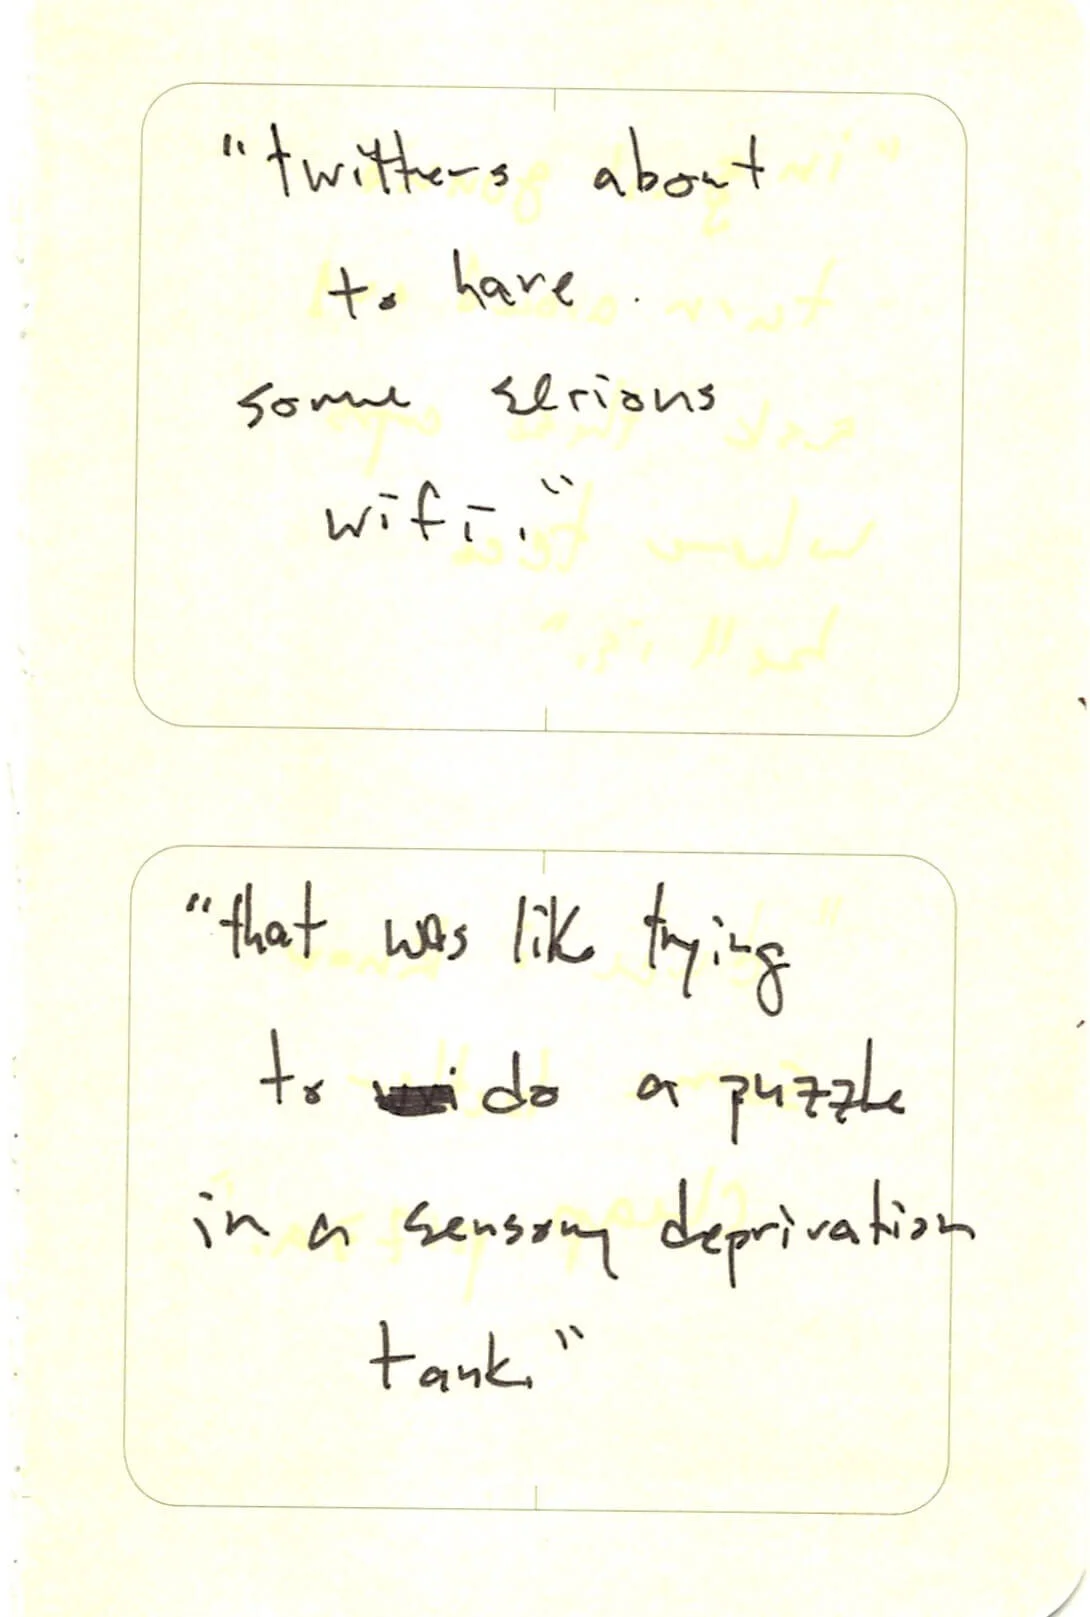 "twitters about
to have
some serious
wifi."
"that was like trying
to do a puzzle
in a sensory deprivation
tank."